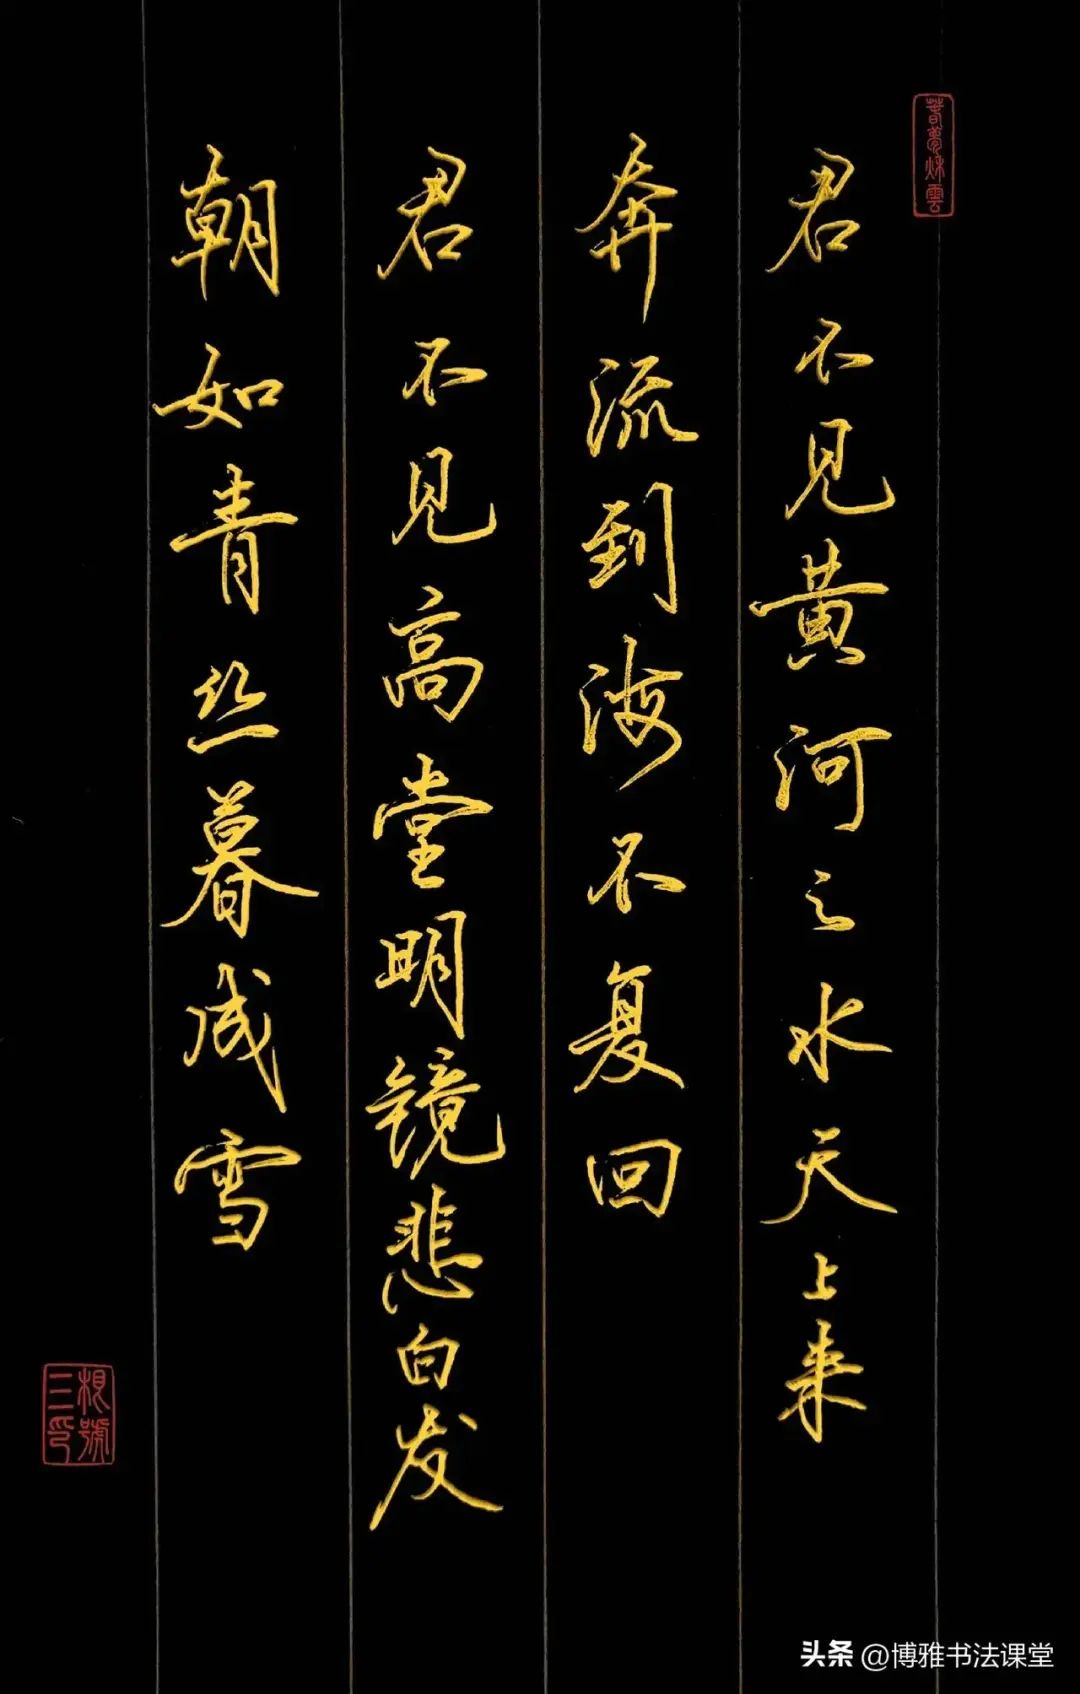 君不见黄河之水天上来
奔流到海不复回
君不见高堂明镜悲白发
朝如青丝暮成雪
春梦秋云
头条 @博雅书法课堂